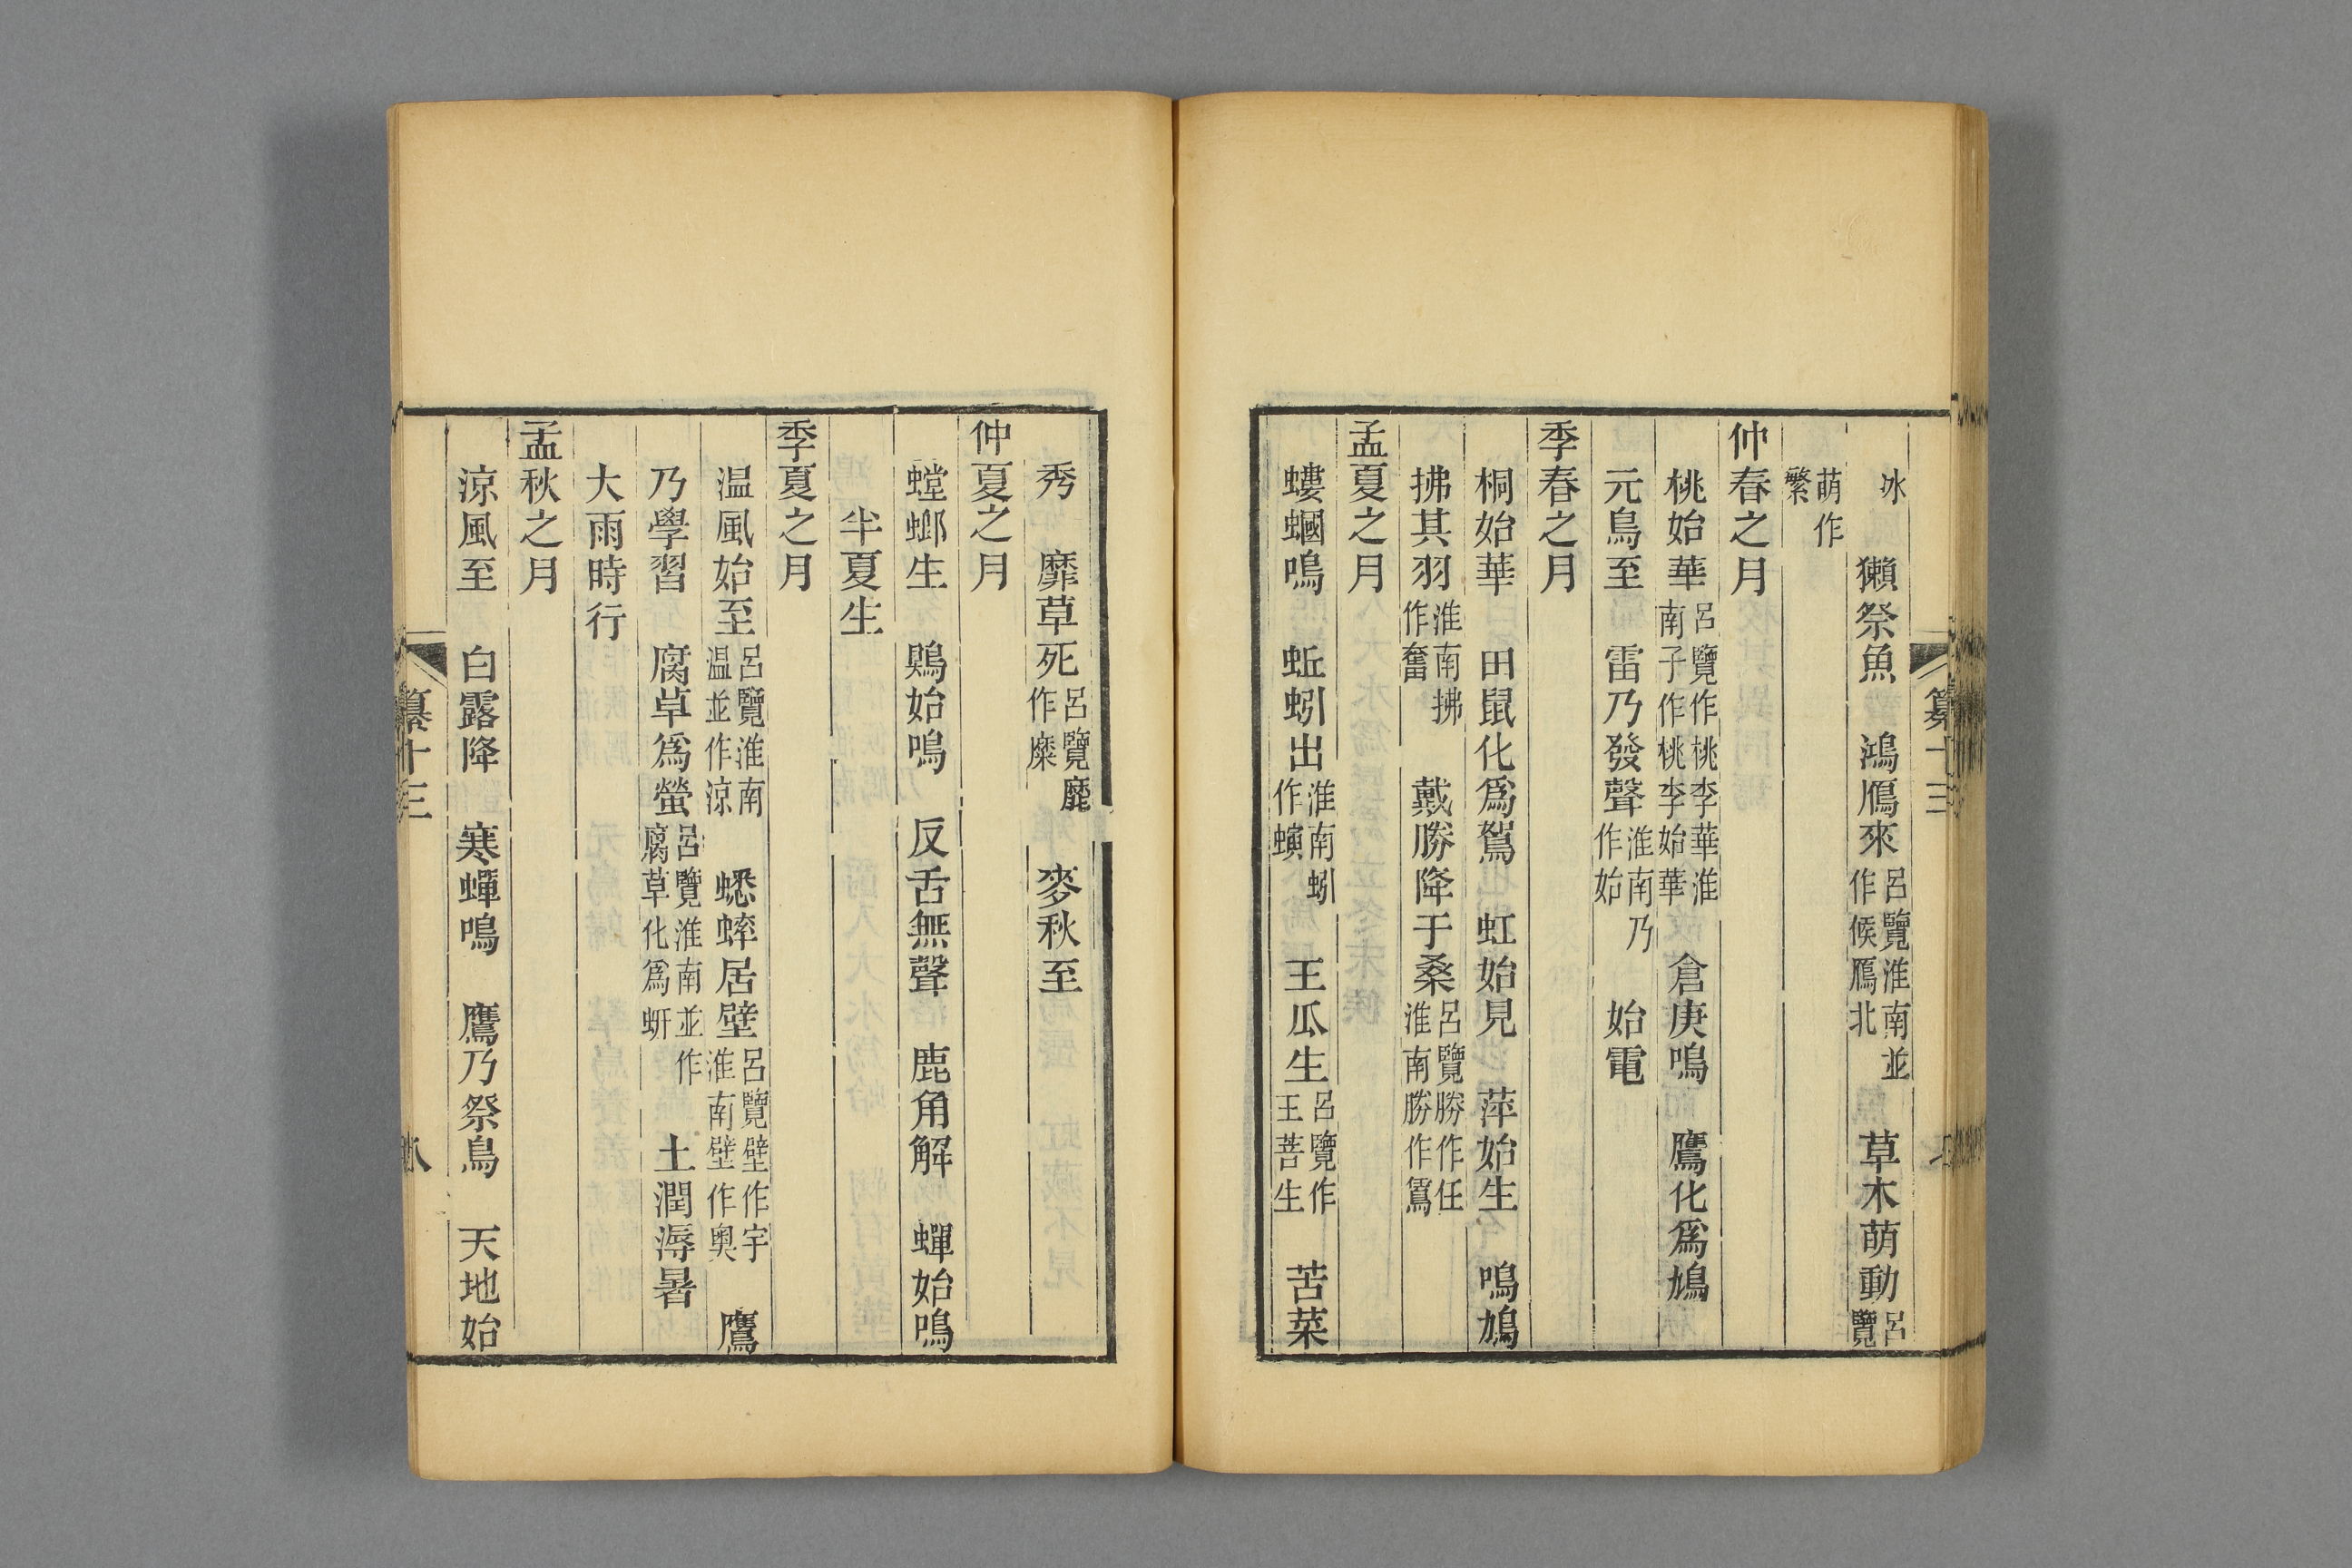 冰　獺祭魚　鴻鴈來呂覽淮南並作候鴈北　草木萌動呂覽
萌作繁
仲春之月
桃始華呂覽作桃李華淮南子作桃李始華　倉庚鳴　鷹化爲鳩
元鳥至　雷乃發聲淮南乃作始　始電
季春之月
桐始華　田鼠化爲鴽　虹始見　萍始生　鳴鳩
拂其羽淮南拂作奮　戴勝降于桑呂覽勝作任淮南勝作鵀
孟夏之月
螻蟈鳴　蚯蚓出淮南蚓作螾　王瓜生呂覽作王菩生　苦菜
秀　靡草死呂覽靡作糜　麥秋至
仲夏之月
螳螂生　鶪始鳴　反舌無聲　鹿角解　蟬始鳴
半夏生
季夏之月
温風始至呂覽淮南温並作涼　蟋蟀居壁呂覽壁作宇淮南壁作奥　鷹
乃學習　腐草爲螢呂覽淮南並作腐草化爲蚈　土潤溽暑
大雨時行
孟秋之月
涼風至　白露降　寒蟬鳴　鷹乃祭鳥　天地始
纂十三